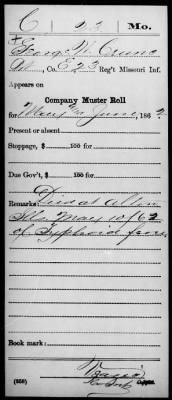 C 23 Mo.
Geo. W. Crume
Co. E 23 Reg't Missouri Inf.
Appears on
Company Muster Roll
for May & June, 1862
Present or absent
Stoppage, $ 100 for
Due Gov't, $ 100 for
Remarks: Died at Alton
Ills. May 10/62
of Typhoid fever
Book mark:
(358) Copyist.